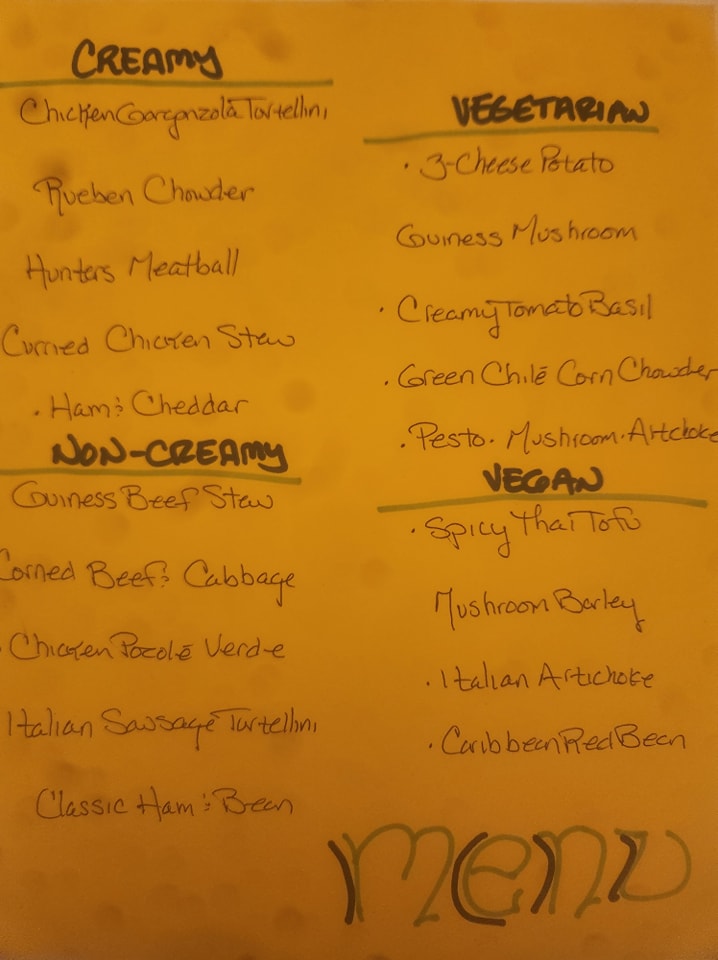 CREAMY
Chicken Gorgonzola Tortellini
Rueben Chowder
Hunters Meatball
Curried Chicken Stew
. Ham & Cheddar
NON-CREAMY
Guiness Beef Stew
Corned Beef & Cabbage
. Chicken Pozolé Verde
Italian Sausage Tortellini
Classic Ham & Bean
VEGETARIAN
. 3-Cheese Potato
Guiness Mushroom
. Creamy Tomato Basil
. Green Chilé Corn Chowder
. Pesto. Mushroom. Artichoke
VEGAN
. Spicy Thai Tofu
Mushroom Barley
. Italian Artichoke
. Caribbean Red Bean
menu